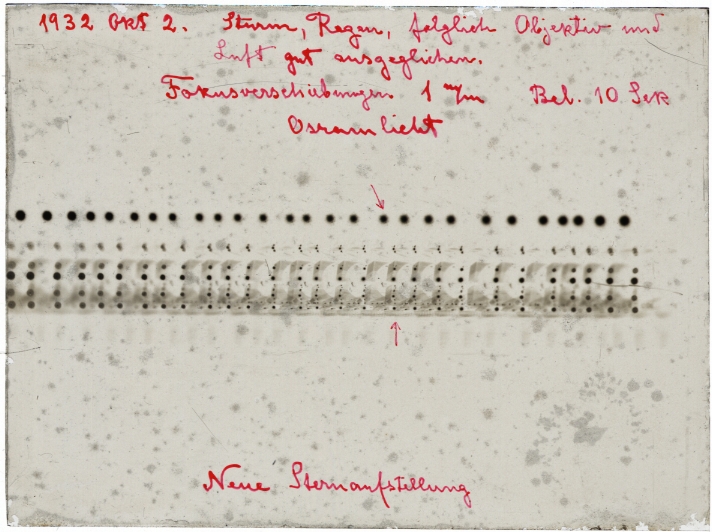 1932 Okt 2. Sturm, Regen, folglich Objektiv und
Luft gut ausgeglichen.
Fokusverschiebungen 1 m/m Bel. 10 Sek
Osramlicht
Neue Sternaufstellung